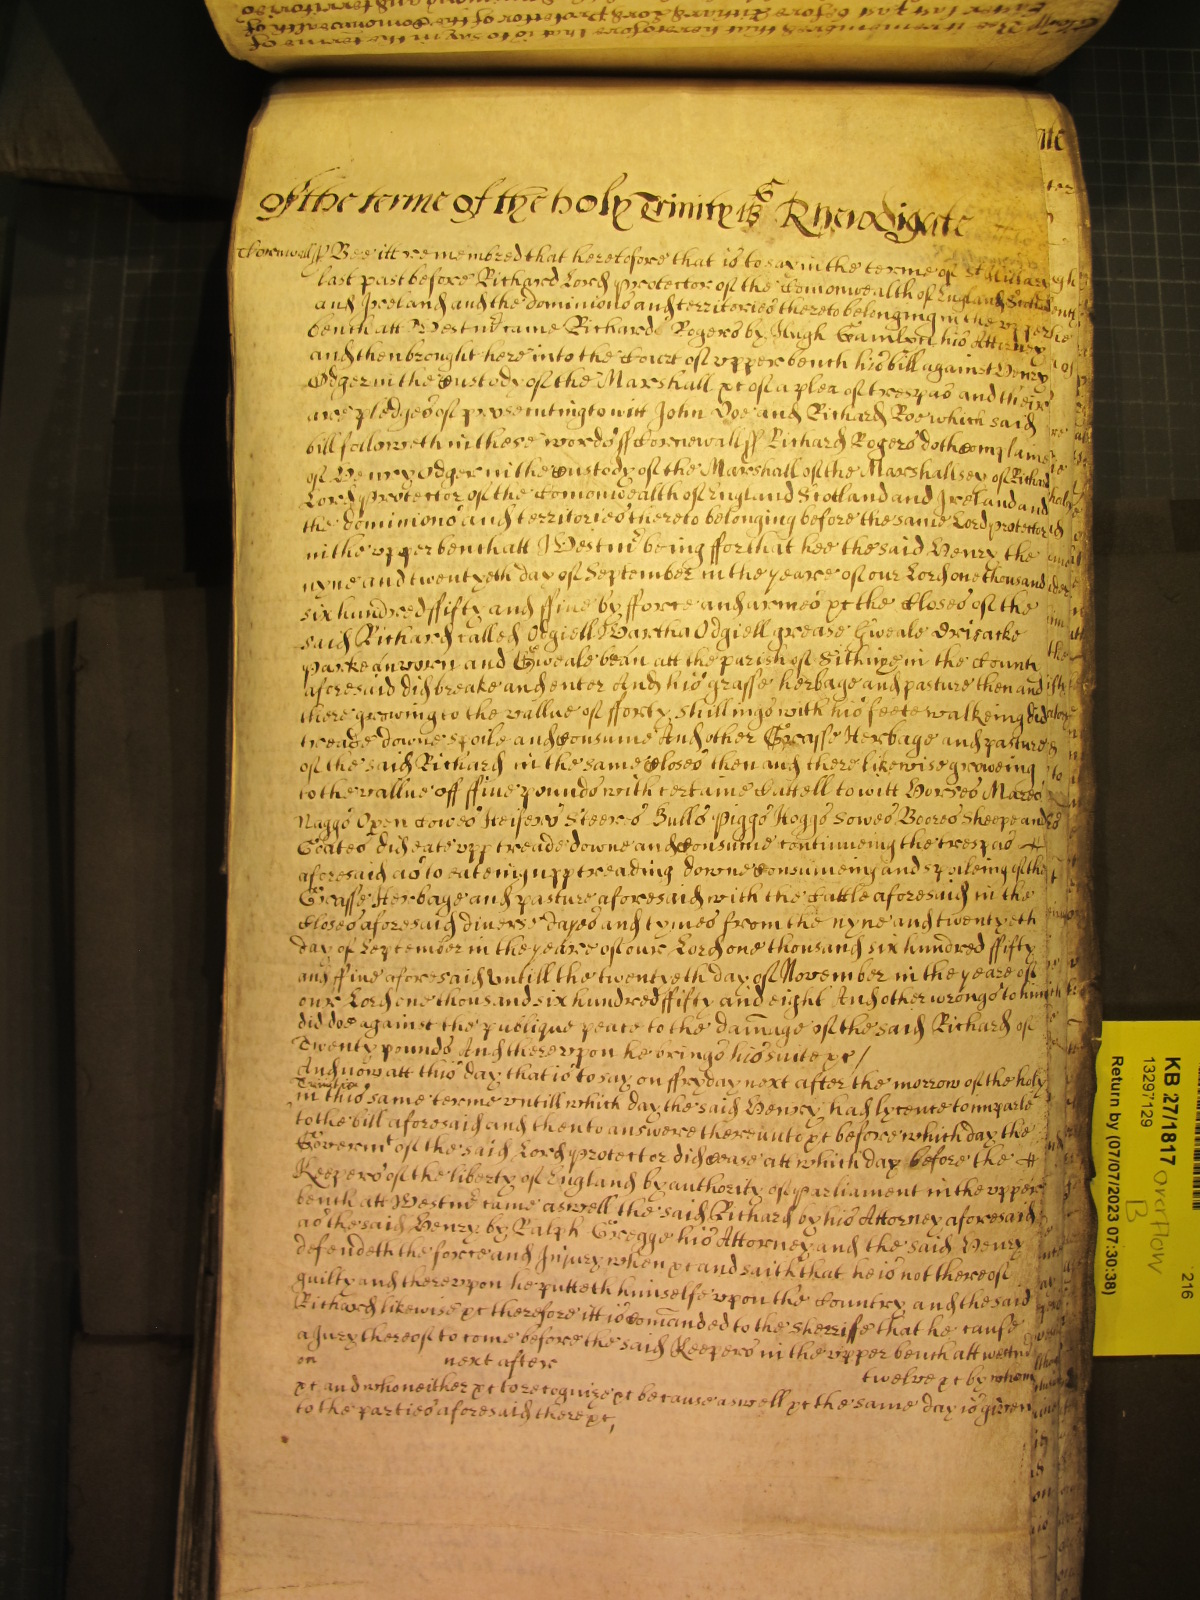 Of the terme of the holy Trinity 1659 R Newdigate
Cornewall ss Bee itt remembred that heretofore that is to say in the terme of St Michael
last past before Richard Lord Protector of the Comonwealth of England Scotland
and Ireland and the dominions and territories thereto belonging in the upper
bench att Westmr came Richard Rogers by Hugh his Attorney
and then brought here into the Court of upper bench his bill against Henry
Odger in the Custody of the Marshall &c of a plea of trespas and their
are pledges of prosecuting to witt John Doe and Richard Roe which said
bill followeth in these words ss Cornewall ss Richard Rogers doth complaine
of Henry Odger in the Custody of the Marshall of the Marshallsey of Richard
Lord Protector of the Comonwealth of England Scotland and Ireland and
the dominions and territories thereto belonging before the same Lord protector
in the upper bench att Westmr being ffor that hee the said Henry the
nyne and twentyeth day of September in the yeare of our Lord one thousand
six hundred ffifty and ffive by fforce and armes &c the Closes of the
said Richard called Odgiell Wartha Odgiell grease Gweale Drisacke
Parke an vorn and Gweale bean att the parish of Sithnye in the County
aforesaid did breake and enter And his grasse herbage and pasture then and
there growing to the vallue of fforty shillings with his feete walkeing did
treade downe spoile and consume And other Grasse Herbage and pasture
of the said Richard in the same Closes then and there likewise groweing
to the vallue off ffive pounds with certaine Cattell to witt Horses Mares
Naggs Oxen Cowes Heifers Steeres Bulls Piggs Hoggs Sowes Boores Sheepe and
Goates did eate upp treade downe and consume continueing the trespas
aforesaid as to eateing upp treading downe consumeing and spoileing of the
Grasse Herbage and pasture aforesaid with the Cattle aforesaid in the
Closes aforesaid diverse dayes and tymes from the nyne and twentyeth
day of September in the yeare of our Lord one thousand six hundred ffifty
and ffive aforesaid untill the twentyeth day of November in the yeare of
our Lord one thousand six hundred ffifty and eight And other wrongs to him
did doe against the publique peace to the damage of the said Richard of
Twenty pounds And thereupon he brings his suite &c /
And now att this day that is to say on ffryday next after the morrow of the holy
Trinitie
in this same terme untill which day the said Henry had lycence to imparle
to the bill aforesaid and then to answere thereunto &c before which day the
Governmt of the said Lord Protector did cease att which day before the
Keepers of the liberty of England by authority of Parliament in the upper
bench att Westmr came aswell the said Richard by his Attorney aforesaid
as the said Henry by Ralph Gregge his Attorney and the said Henry
defendeth the force and Injury when &c and saith that he is not thereof
guilty and thereupon he putteth himselfe upon the Country and the said
Richard likewise &c therefore itt is comanded to the Sherriffe that he cause
a Jury thereof to come before the said Keepers in the upper bench att westmr
on next after twelve &c by whom
&c and who neither &c to recognize &c because aswell &c the same day is given
to the parties aforesaid there &c,
KB 27/1817 overflow
13297129 B
216
Return by (07/07/2023 07:30:38)